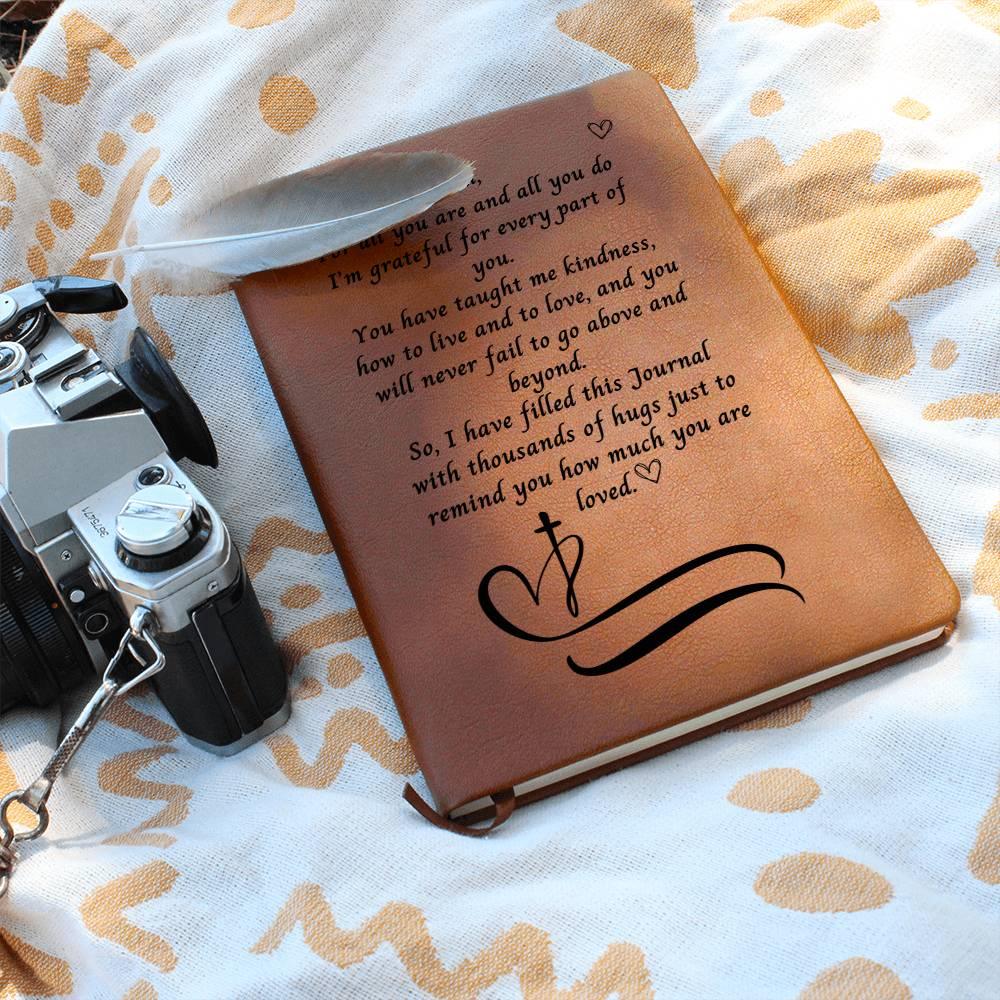 For all you are and all you do
I'm grateful for every part of
you.
You have taught me kindness,
how to live and to love, and you
will never fail to go above and
beyond.
So, I have filled this Journal
with thousands of hugs just to
remind you how much you are
loved.
367547A